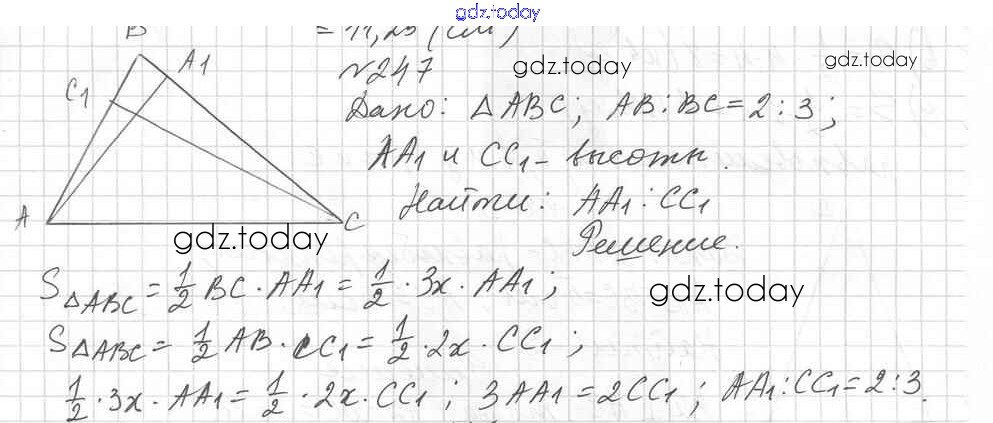 gdz.today
= 11,25 (см)
№247
gdz.today
gdz.today
B
A1
C1
A
C
Дано: △ABC; AB:BC=2:3;
AA1 и CC1 – высоты.
Найти: AA1:CC1
Решение.
gdz.today
S△ABC = 1/2 BC · AA1 = 1/2 · 3x · AA1;
gdz.today
S△ABC = 1/2 AB · CC1 = 1/2 · 2x · CC1;
1/2 · 3x · AA1 = 1/2 · 2x · CC1; 3AA1 = 2CC1; AA1:CC1=2:3.